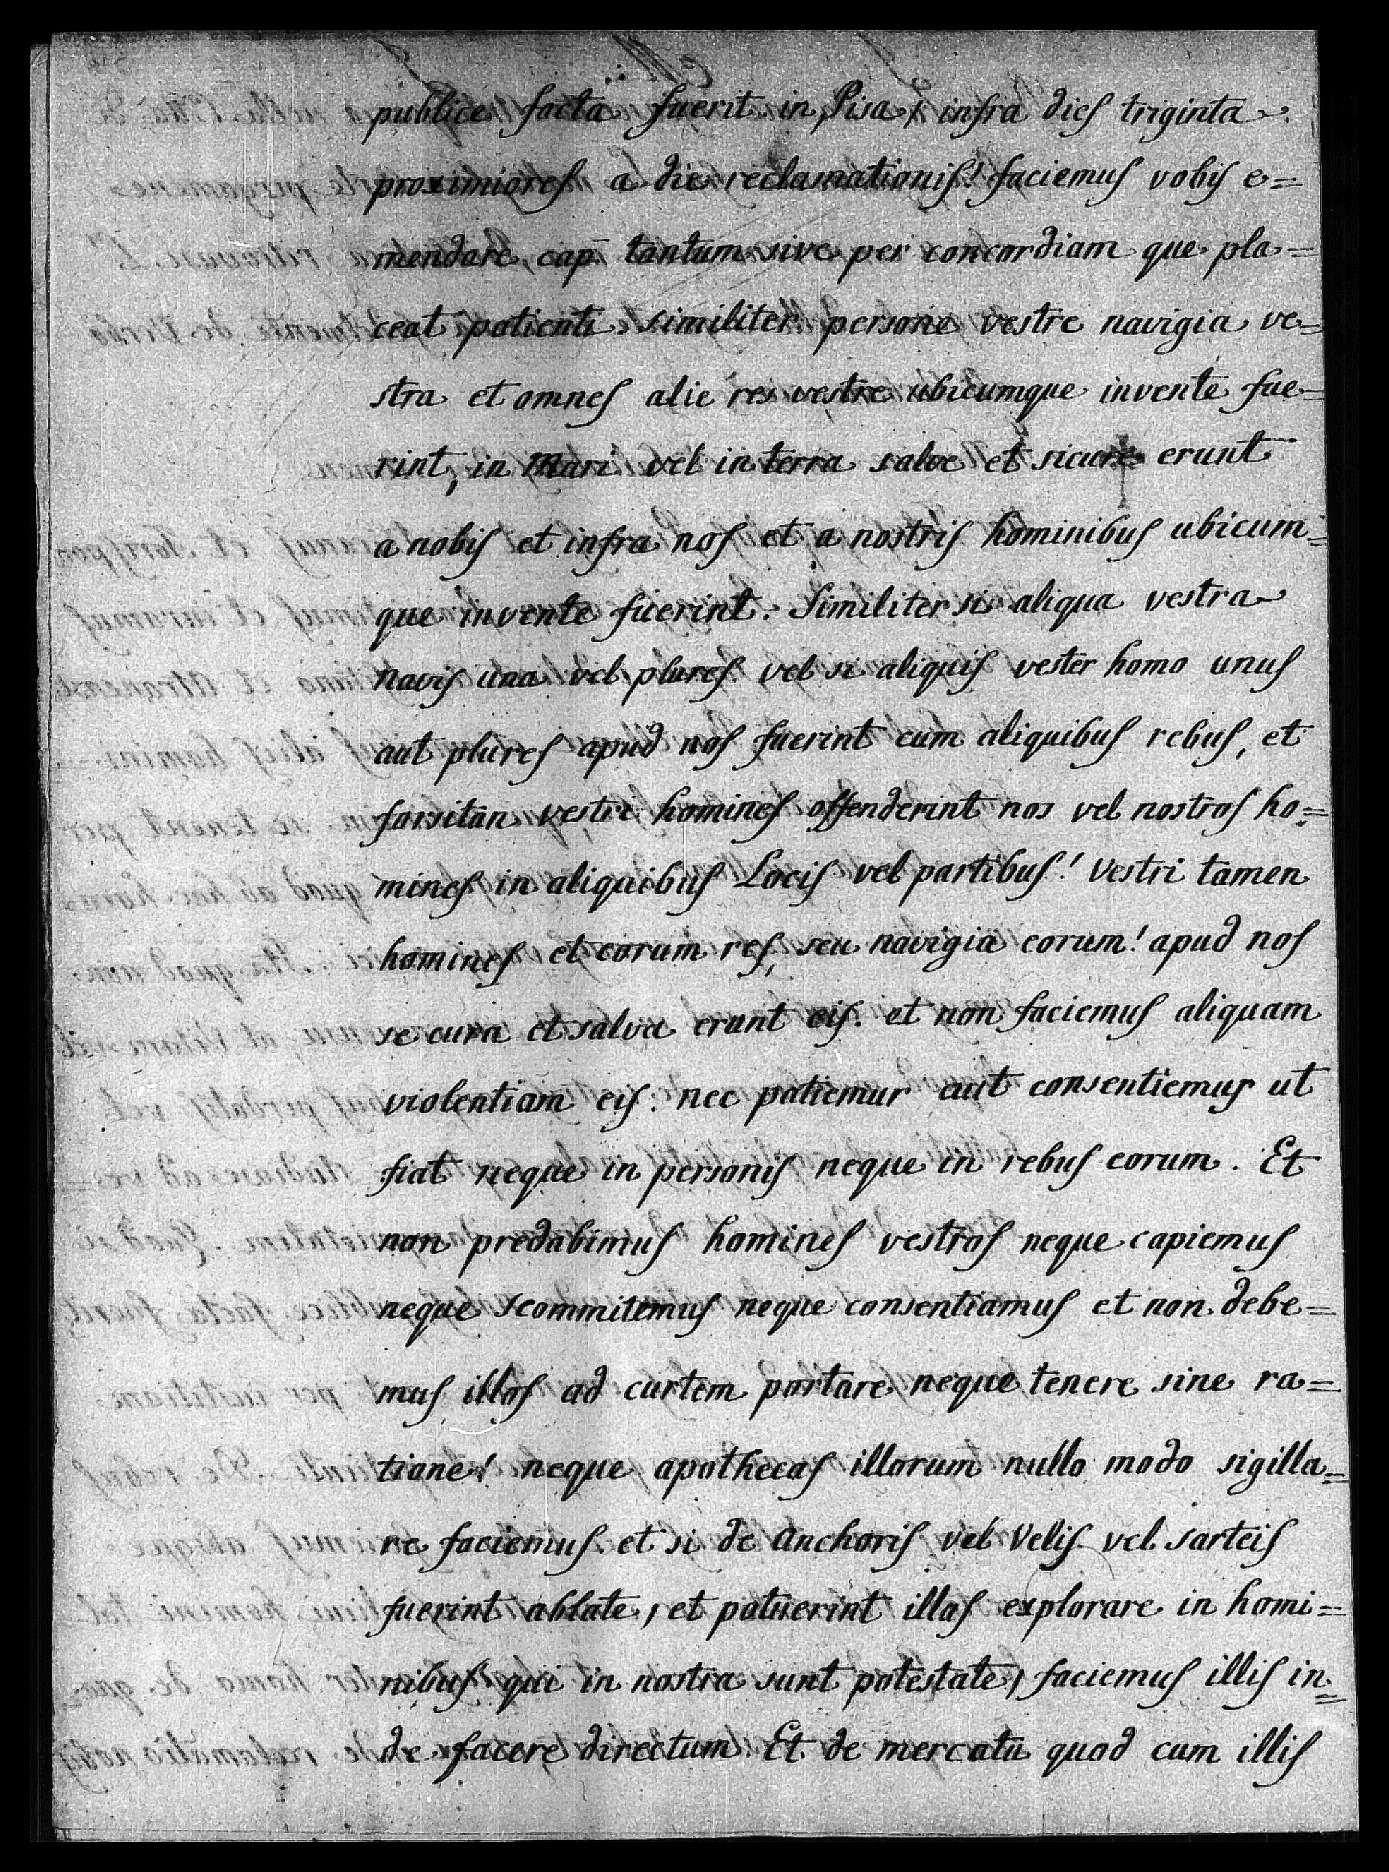 publice facta fuerit in Pisa, infra dies triginta
proximiores a die reclamationis! faciemus vobis e=
mendare, cap̄ tantum sive per concordiam que pla=
ceat patienti similiter persone vestre navigia ve=
stra et omnes alie res vestre ubicumque invente fue=
rint, in Mari vel in terra salve et sicure erunt
a nobis et infra nos et a nostris hominibus ubicum=
que invente fuerint. Similiter si aliqua vestra
navis una vel plures vel si aliquis vester homo unus
aut plures apud nos fuerint cum aliquibus rebus, et
forsitan vestri homines offenderint nos vel nostros ho=
mines in aliquibus Locis vel partibus! Vestri tamen
homines et eorum res, seu navigia eorum! apud nos
se cura et salva erunt eis. et non faciemus aliquam
violentiam eis. nec patiemur aut consentiemus ut
fiat neque in personis neque in rebus eorum. Et
non predabimus homines vestros neque capiemus
neque scommitemus neque consentiamus et non debe=
mus illos ad curtem portare neque tenere sine ra=
tione! neque apothecas illorum nullo modo sigilla=
re faciemus. et si de Anchoris vel Velis vel sarteis
fuerint ablate, et potuerint illas explorare in homi=
nibus qui in nostra sunt potestate, faciemus illis in=
de facere directum. Et de mercatu quod cum illis